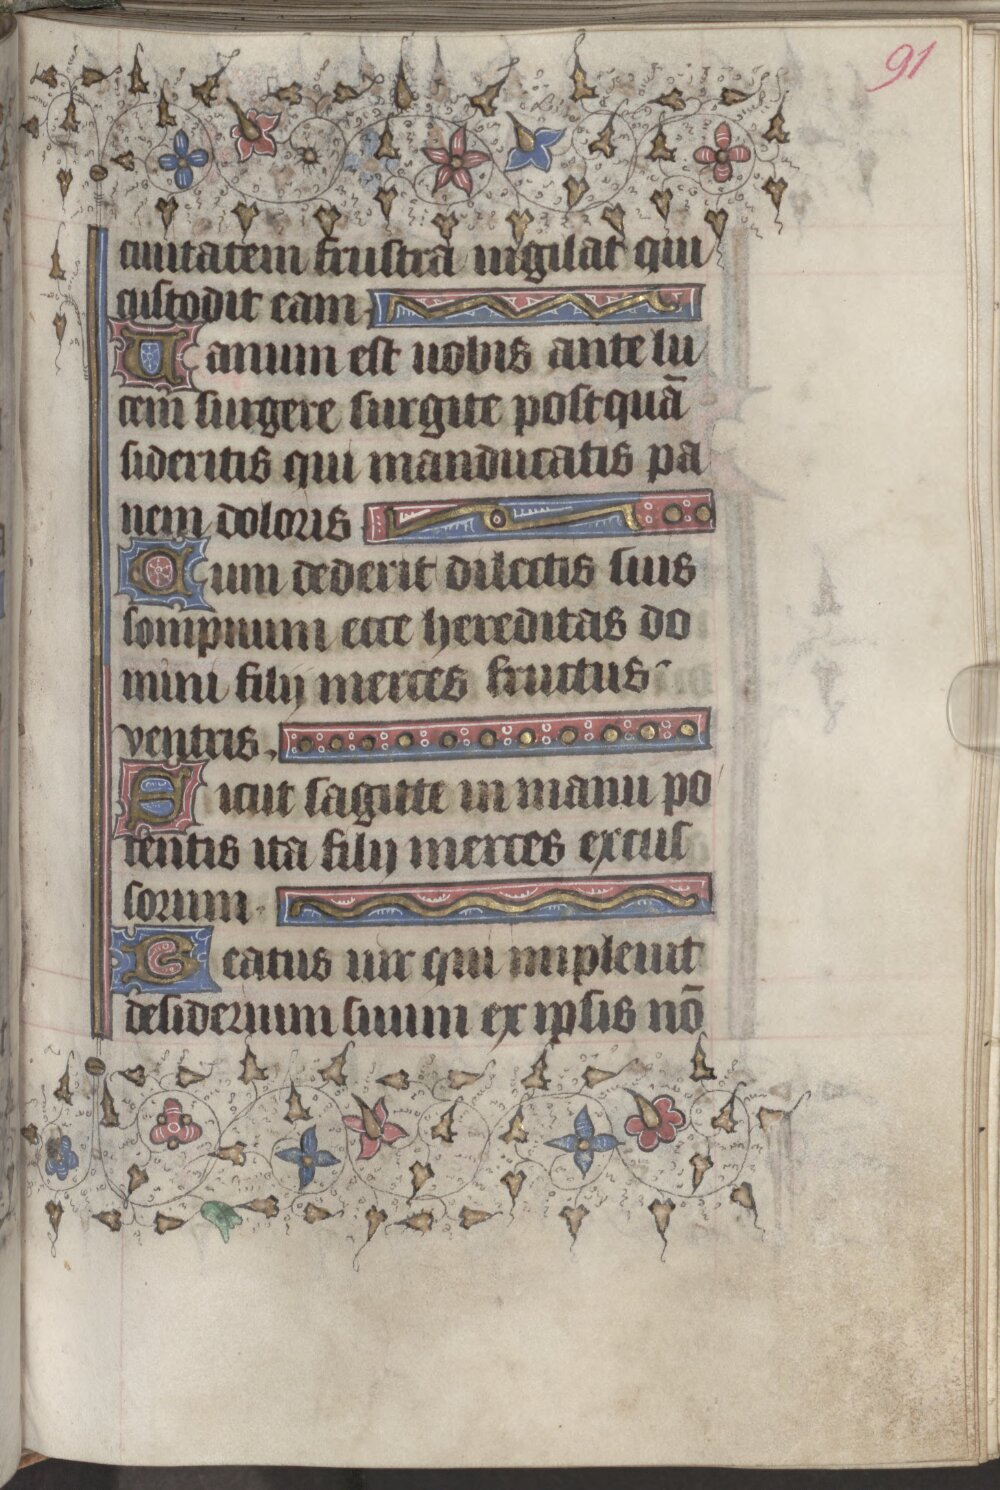 91
ciuitatem frustra uigilat qui
custodit eam
Uanum est uobis ante lu
cem surgere surgite postquā
sideritis qui manducatis pa
nem doloris
Cum dederit dilectis suis
sompnum ecce hereditas do
mini filij merces fructus
ventris.
Sicut sagitte in manu po
tentis ita filij merces excus
sorum
Beatus uir qui impleuit
desiderium suum ex ipsis nō